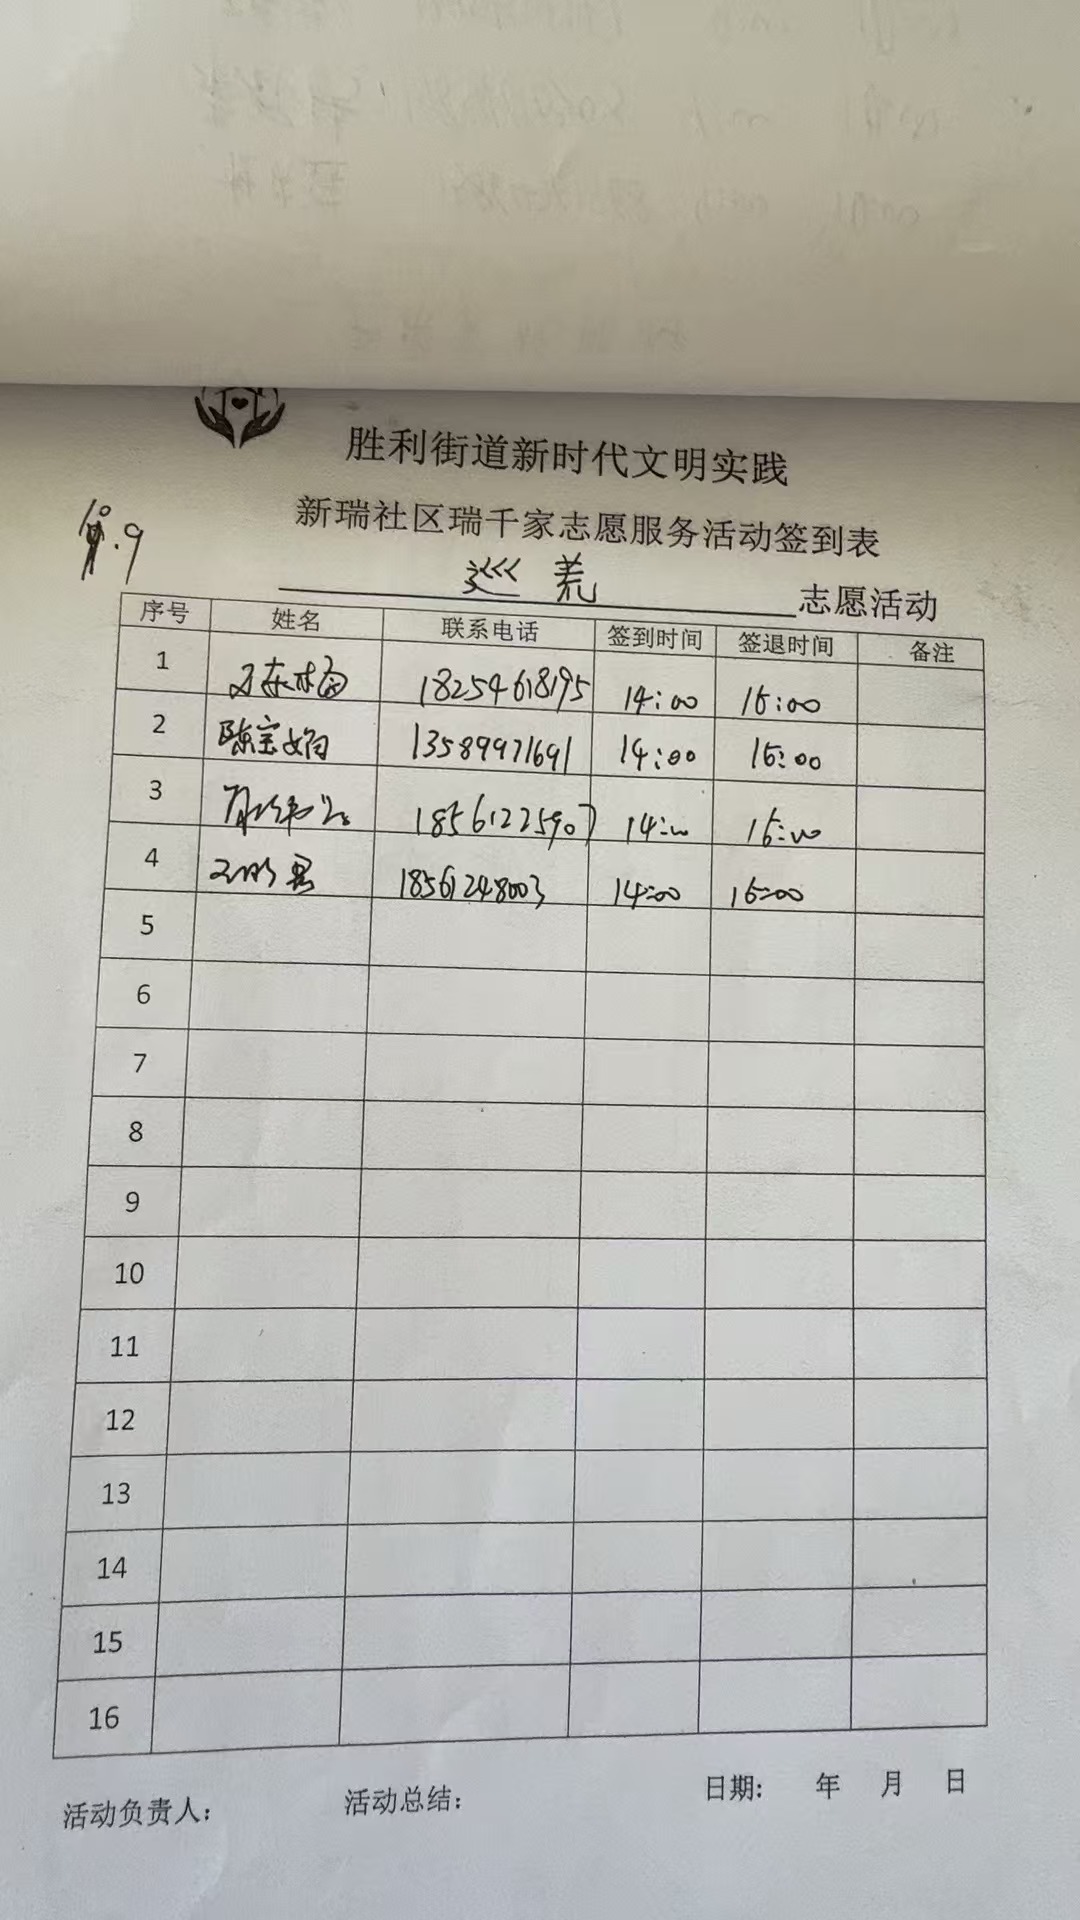 胜利街道新时代文明实践
新瑞社区瑞千家志愿服务活动签到表
.9
巡 志愿活动
序号 姓名 联系电话 签到时间 签退时间 备注
1 18254618195 14:00 15:00
2 陈宝娟 13589971691 14:00 15:00
3 18561225907 14:00 15:00
4 18561248003 14:00 15:00
5
6
7
8
9
10
11
12
13
14
15
16
活动负责人: 活动总结: 日期: 年 月 日